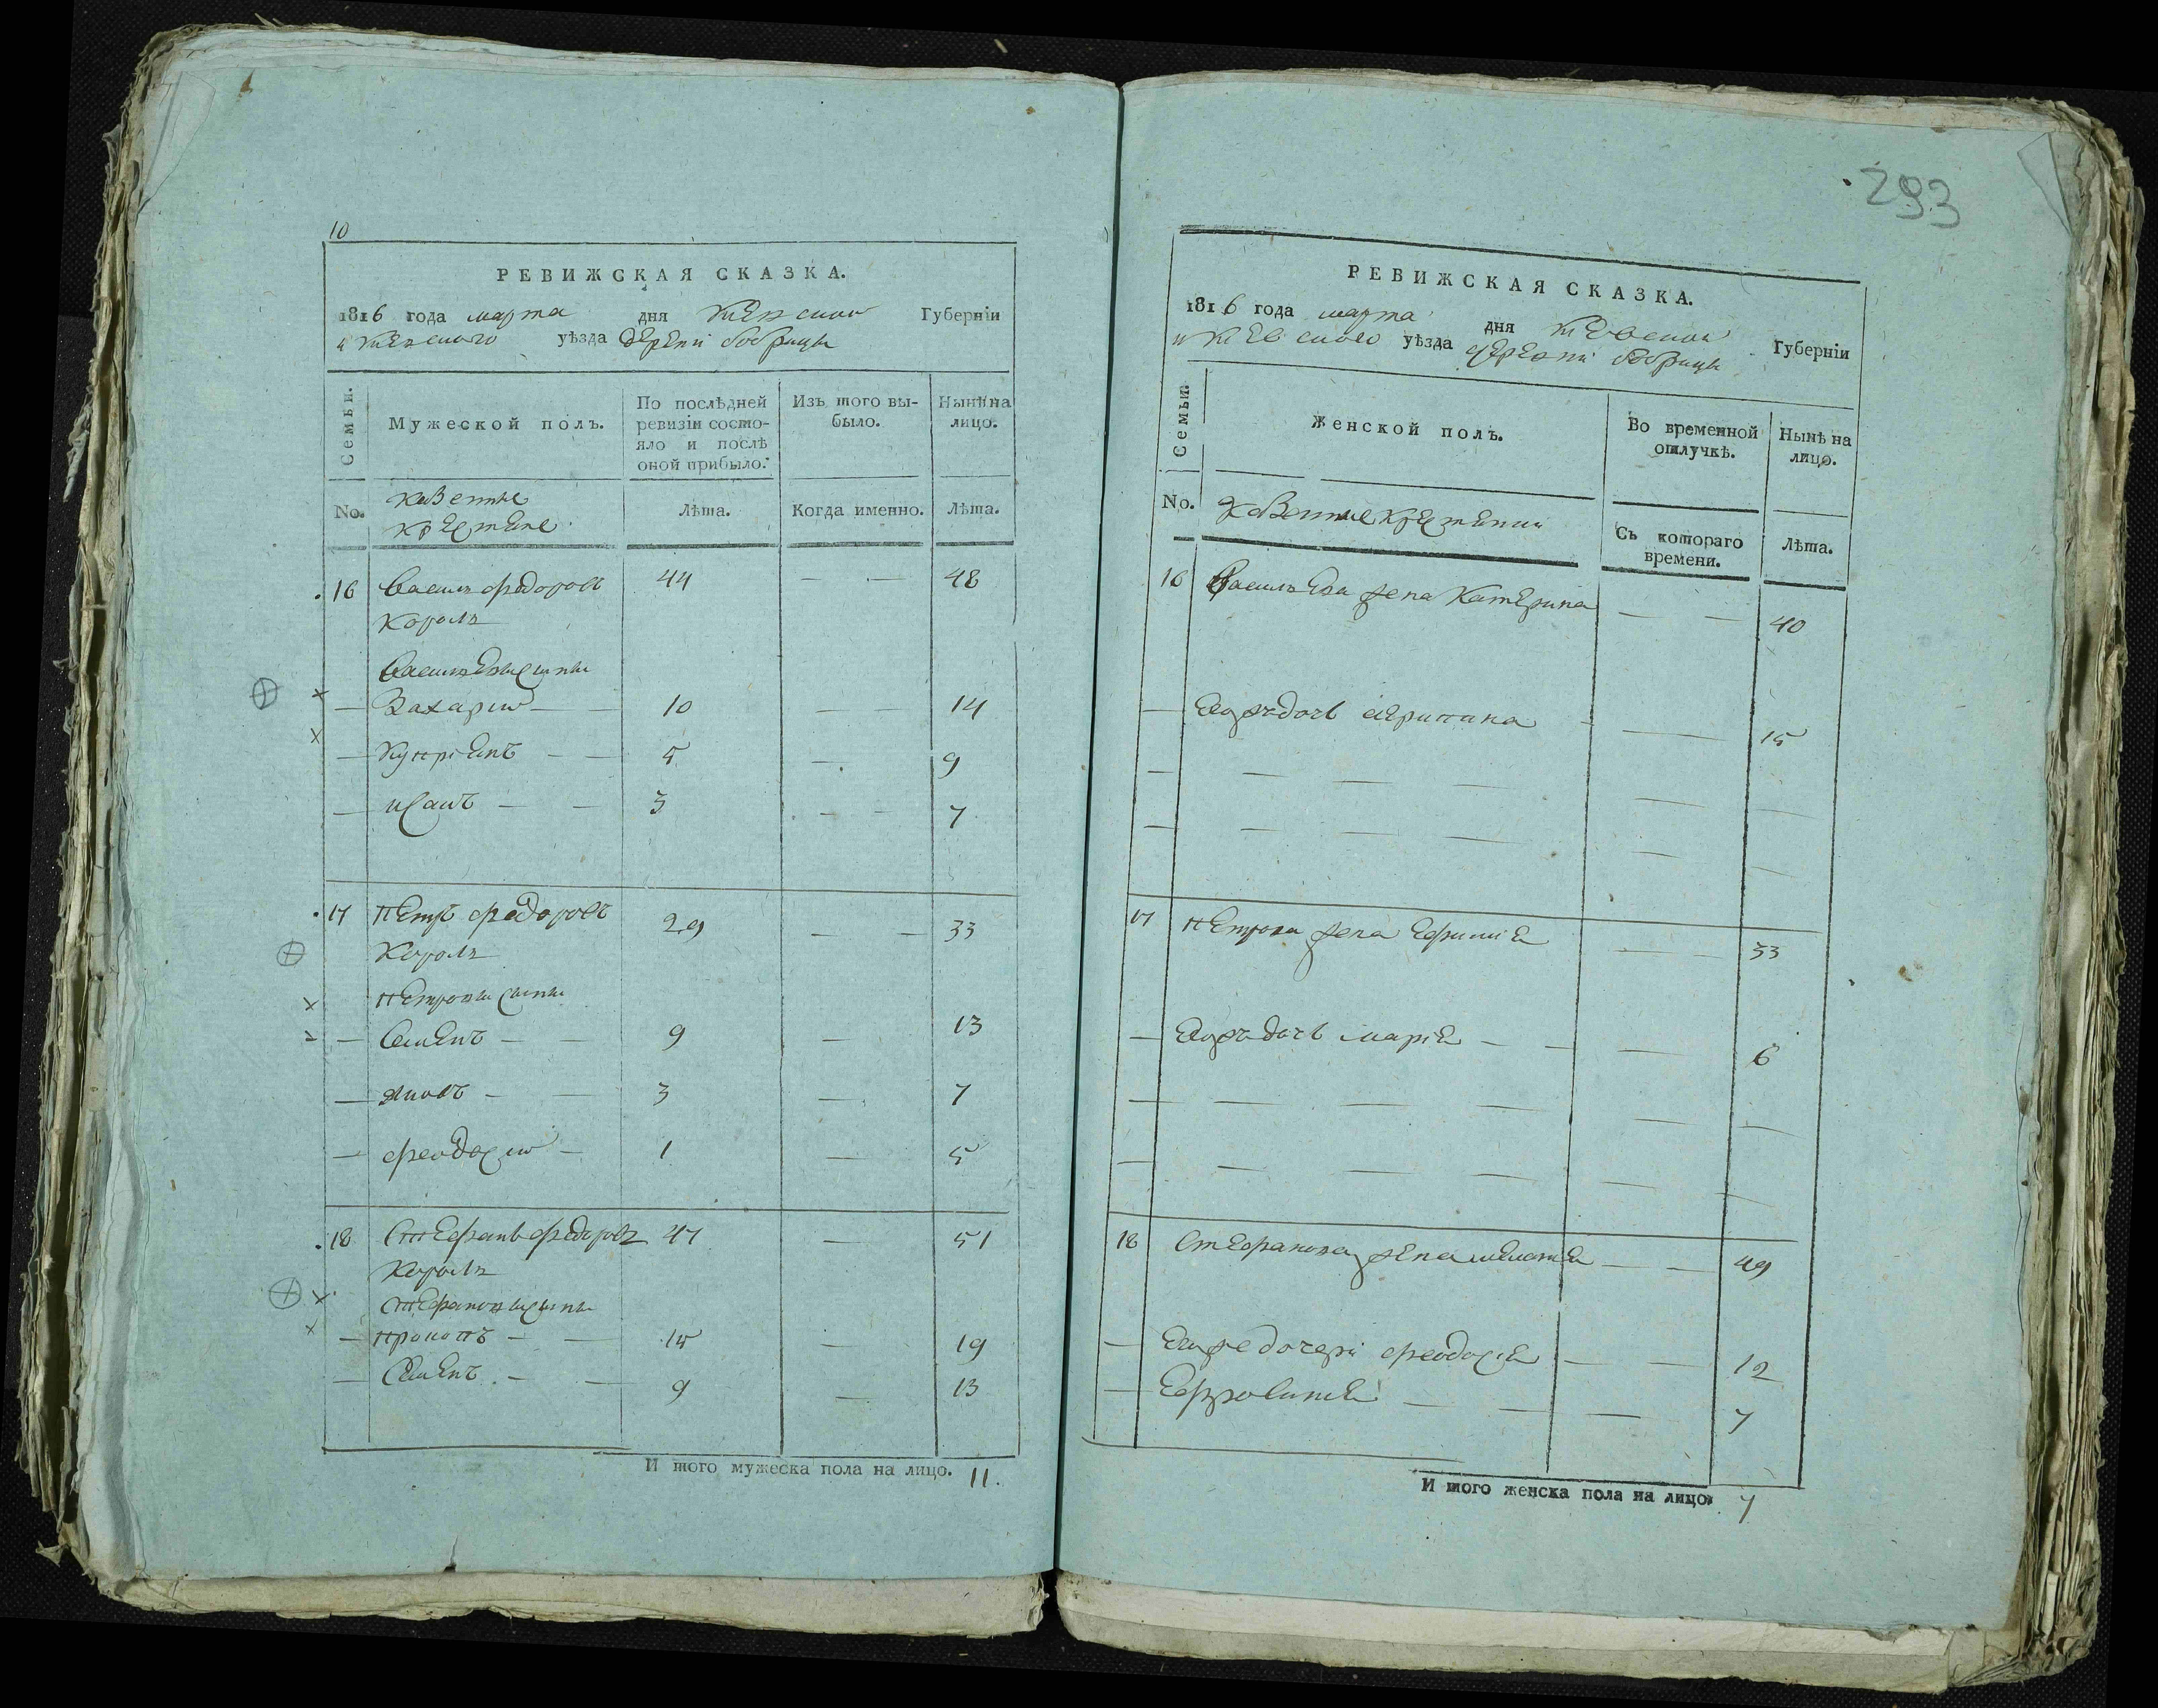 10
РЕВИЖСКАЯ СКАЗКА.
1816 года марта дня киевской Губерніи
и киевского уѣзда деревни бобрицы
Семьи.
Мужеской полъ.
По послѣдней ревизіи состояло и послѣ оной прибыло.
Изъ того выбыло.
Нынѣ на лицо.
No.
казенные
крестяне
Лѣта.
Когда именно.
Лѣта.
16 Василь федоровъ 44 — — 48
Король
Васильевы сыны
— Захарий — — 10 — — 14
— Куприянъ — — 5 — 9
— исаиъ — — 3 — — 7
17 Петръ федоровъ 29 — — 33
Король
Петровы сыны
— Семенъ — — 9 — 13
— яковъ — — 3 — 7
— феодосий — 1 — 5
18 Стефанъ федоровъ 47 — 51
Король
Стефановы сыны
— прокопъ — — 15 — 19
— Семенъ — — 9 — 13
И того мужеска пола на лицо. 11.
293
РЕВИЖСКАЯ СКАЗКА.
1816 года марта дня киевской Губерніи
и киевского уѣзда деревни бобрицы
Семьи.
Женской полъ.
Во временной отлучкѣ.
Нынѣ на лицо.
No.
Казенные крестянки
Съ котораго времени.
Лѣта.
16 Васильева жена Катерина — — 40
— Егожъ дочь агрипина — 15
17 Петрова жена Ефимия — — 33
— Егожъ дочь мария — — — 6
18 Стефанова жена мелания — — 49
— Егоже дочери феодосия — — 12
— Ефросиния — — — 7
И того женска пола на лицо 7